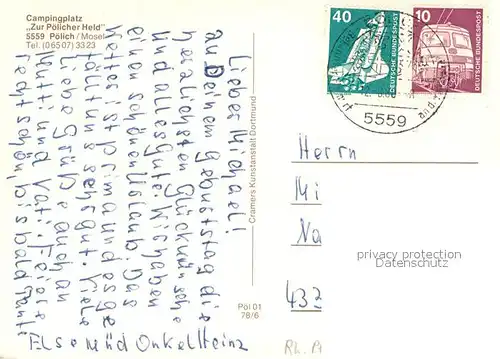 Campingplatz
„Zur Pölicher Held"
5559 Pölich/Mosel
Tel. (06507) 3323
Lieber Michael!
an Deinem Geburtstag die
herzlichsten Glückwünsche
und alles Gute. Wir haben
einen schönen Urlaub. Das
Wetter ist prima und es ge
fällt uns sehr gut. Viele
liebe Grüße auch an
Mutti und Vati. Feiere
recht schön, bis bald Tante
Else und Onkel Heinz
Cramers Kunstanstalt Dortmund
Pöl 01
78/6
40
DEUTSCHE BUNDESPOST
10
DEUTSCHE BUNDESPOST
5559
Herrn
Mi
Na
432
privacy protection
Datenschutz
Rh. A